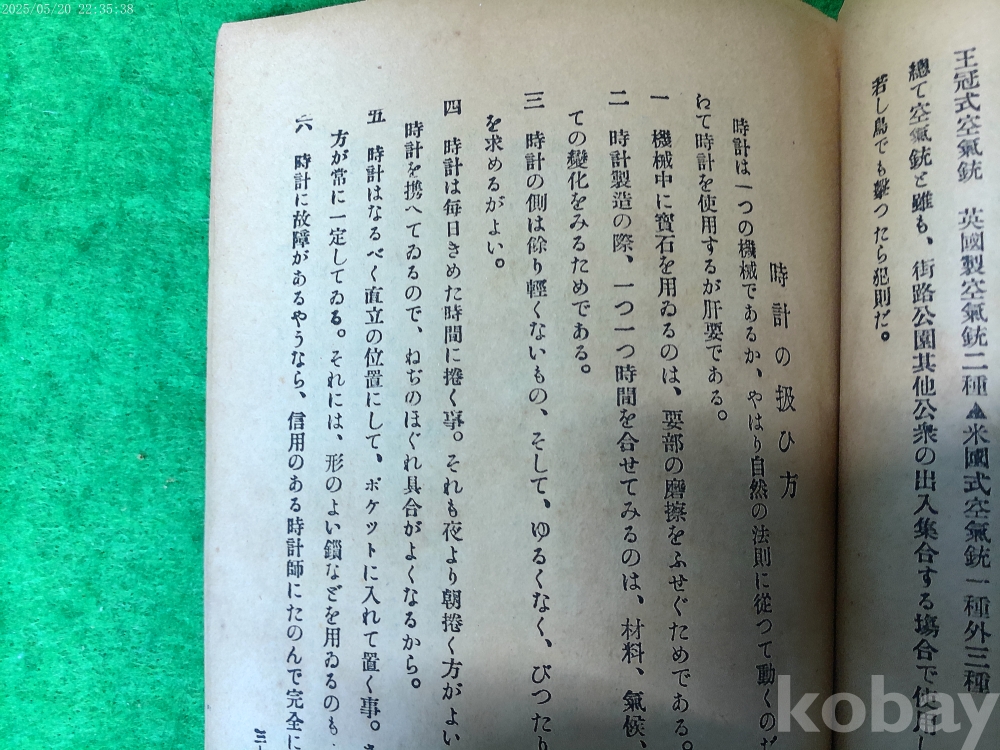 2025/05/20 22:35:38
王冠式空氣銃 英國製空氣銃二種▲米國式空氣銃一種外三種
總て空氣銃と雖も、街路公園其他公衆の出入集合する塲合で使用
若し鳥でも擊つたら犯則だ。
時計の扱ひ方
時計は一つの機械であるか、やはり自然の法則に從つて動くのだ
わて時計を使用するが肝要である。
一 機械中に寳石を用ゐるのは、要部の磨擦をふせぐためである。
二 時計製造の際、一つ一つ時間を合せてみるのは、材料、氣候、
ての變化をみるためである。
三 時計の側は餘り輕くないもの、そして、ゆるくなく、ぴつたり
を求めるがよい。
四 時計は每日きめた時間に捲く事。それも夜より朝捲く方がよい
時計を携へてゐるので、ねぢのほぐれ具合がよくなるから。
五 時計はなるべく直立の位置にして、ポケットに入れて置く事。
方が常に一定してゐる。それには、形のよい鎖などを用ゐるのも
六 時計に故障があるやうなら、信用のある時計師にたのんで完全に
三
kobay